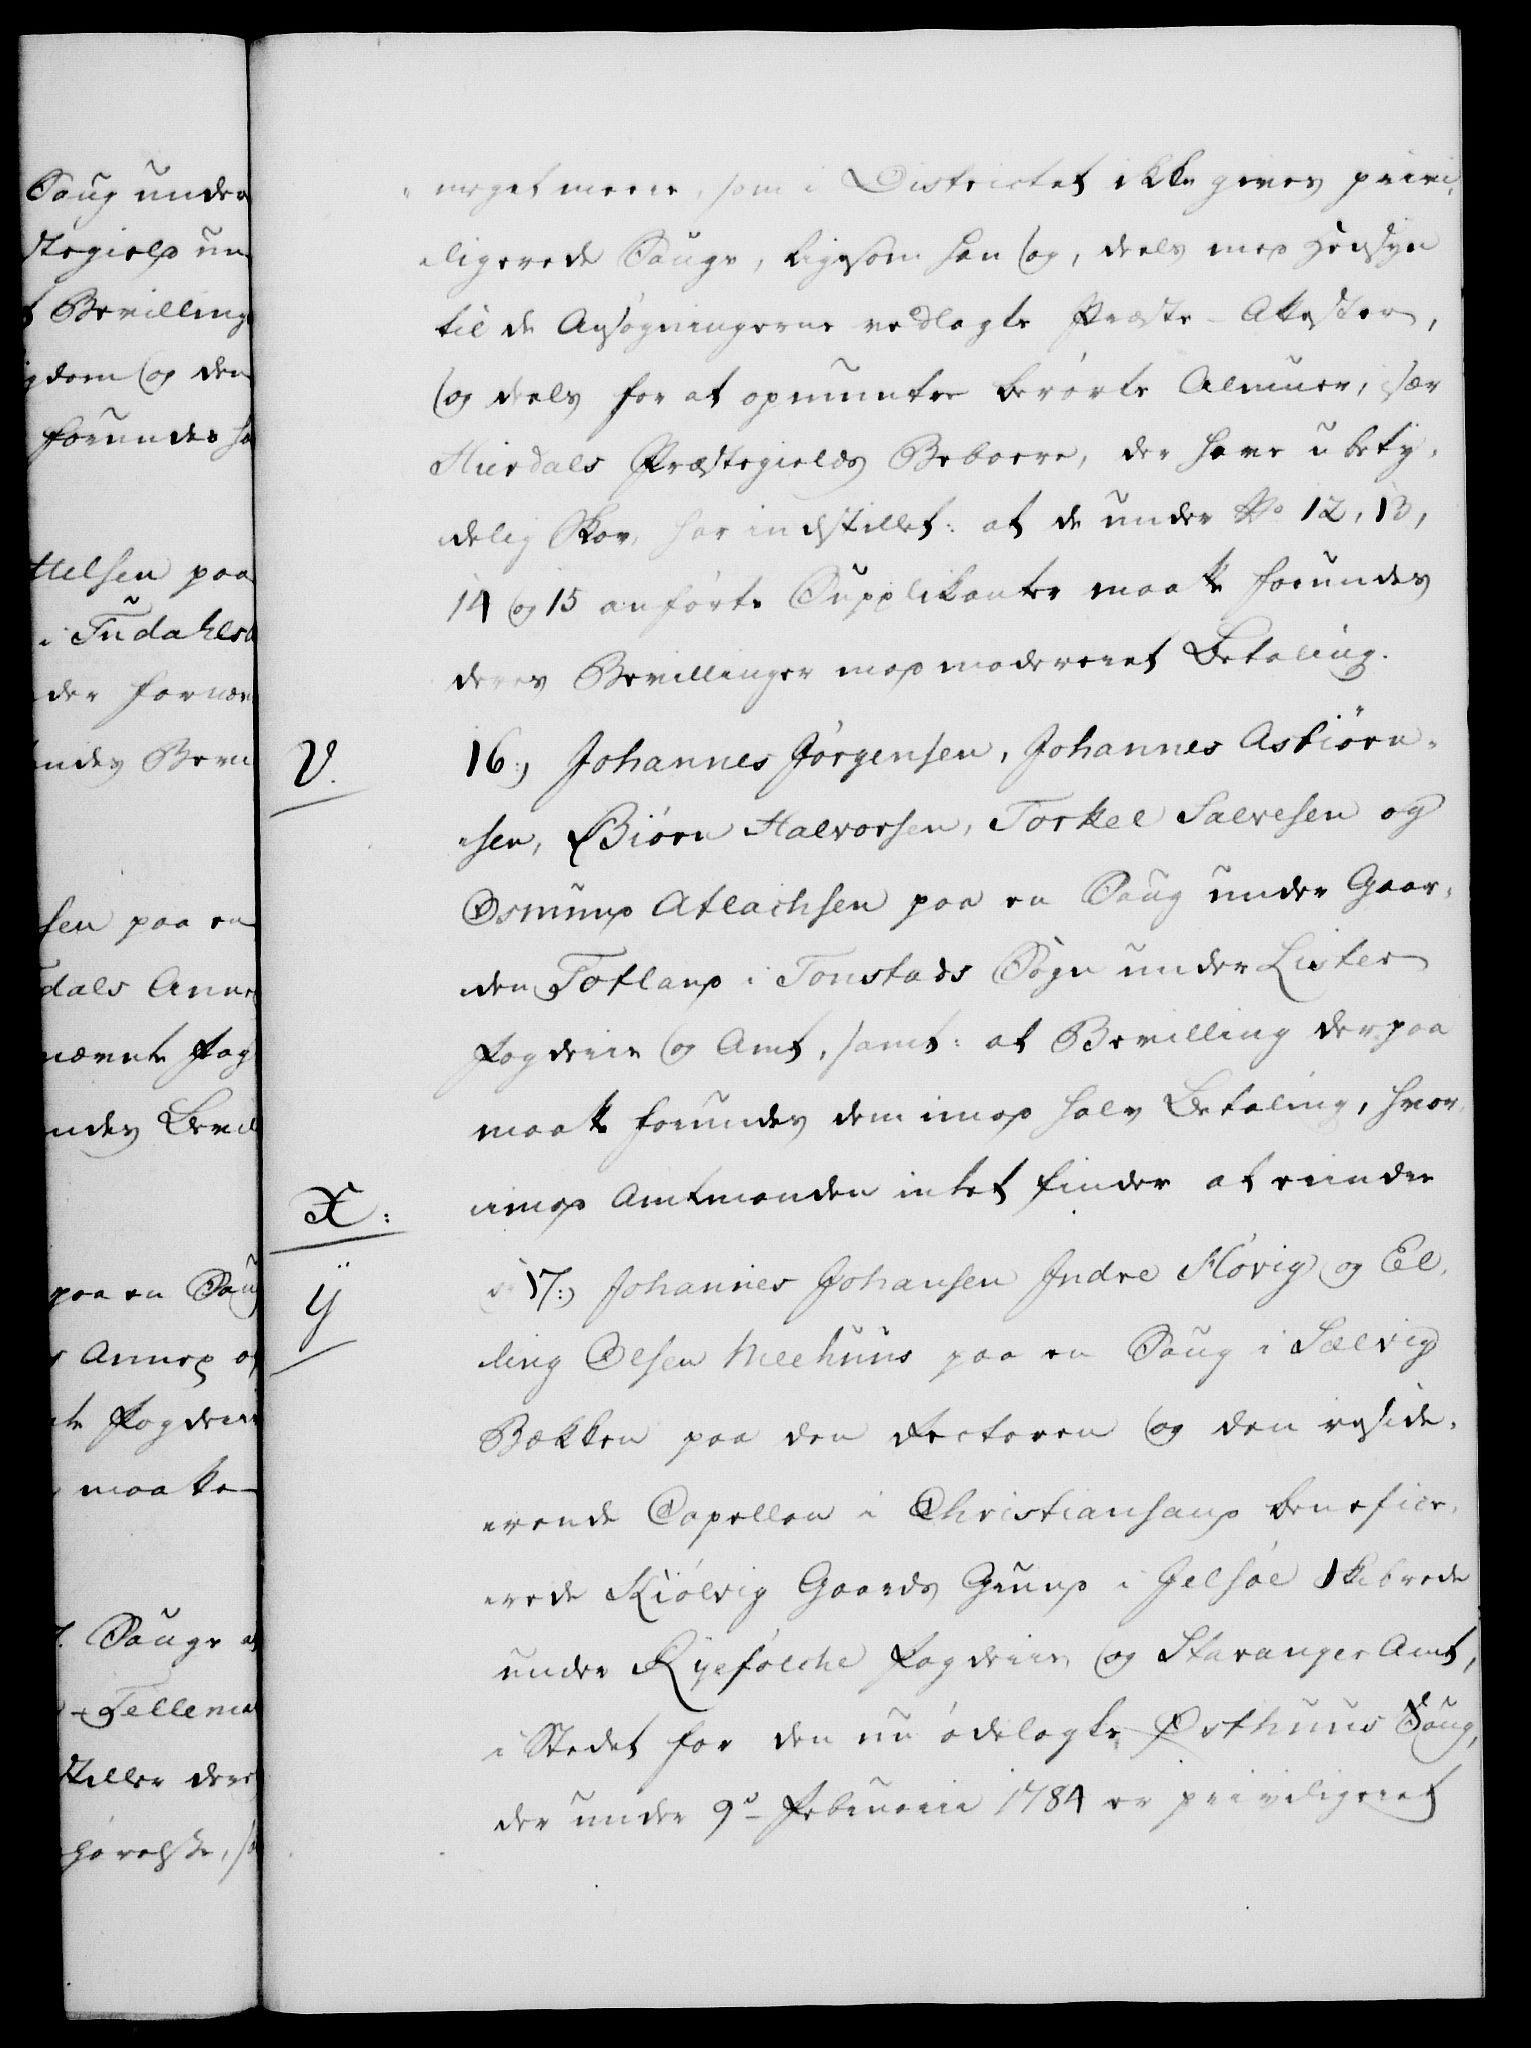 Saug under
stegield un
t Bevilling
gdom og den
forundes ha
ttelsen paa
i Tudahls
der fornæv
undes Beva
sen paa en
dals Annex
nævnte Fog
undes Bevil
paa en Saug
s Annex og
te Fogderie
maatte
Sauge
Tellema
stiller der
hørelse, sa
meget meere, som i Districtet ikke gives privi-
ligerede Sauge, ligesom han og, deels med Hensyn
til de Ansøgningerne vedlagte Præste-Attester,
og deels for at opmuntre berørte Almuer, især
Hierdals Præstegields Beboere, der have ubety-
delig Skov, har indstillet: at de under No 12, 13,
14 og 15 anførte Supplikanter maatte forundes
deres Bevillinger mod modereret Betaling.
V.
16.) Johannes Jørgensen, Johannes Asbiørn-
sen, Biørn Halvorsen, Torkel Salvesen og
Osmund Atlachsen paa en Saug under Gaar-
den Fotland i Tonstads Sogn under Lister
Fogderie og Amt, samt: at Bevilling derpaa
maatte forundes dem imod halv Betaling, hvor-
imod Amtmanden intet finder at erindre
X:
ÿ
17:) Johannes Johansen Indre Høvig og El-
ling Olsen Meehuus paa en Saug i Sælvig
Bækken paa den Rectoren og den reside-
rende Capellan i Christiansand benefice-
rede Kiølvig Gaards Grund i Jelsøe Skibrede
under Ryefølche Fogderie og Stavanger Amt,
i Stedet for den nu ødelagte Østhuus Saug,
der under 9de Februarii 1784 er priviligeret